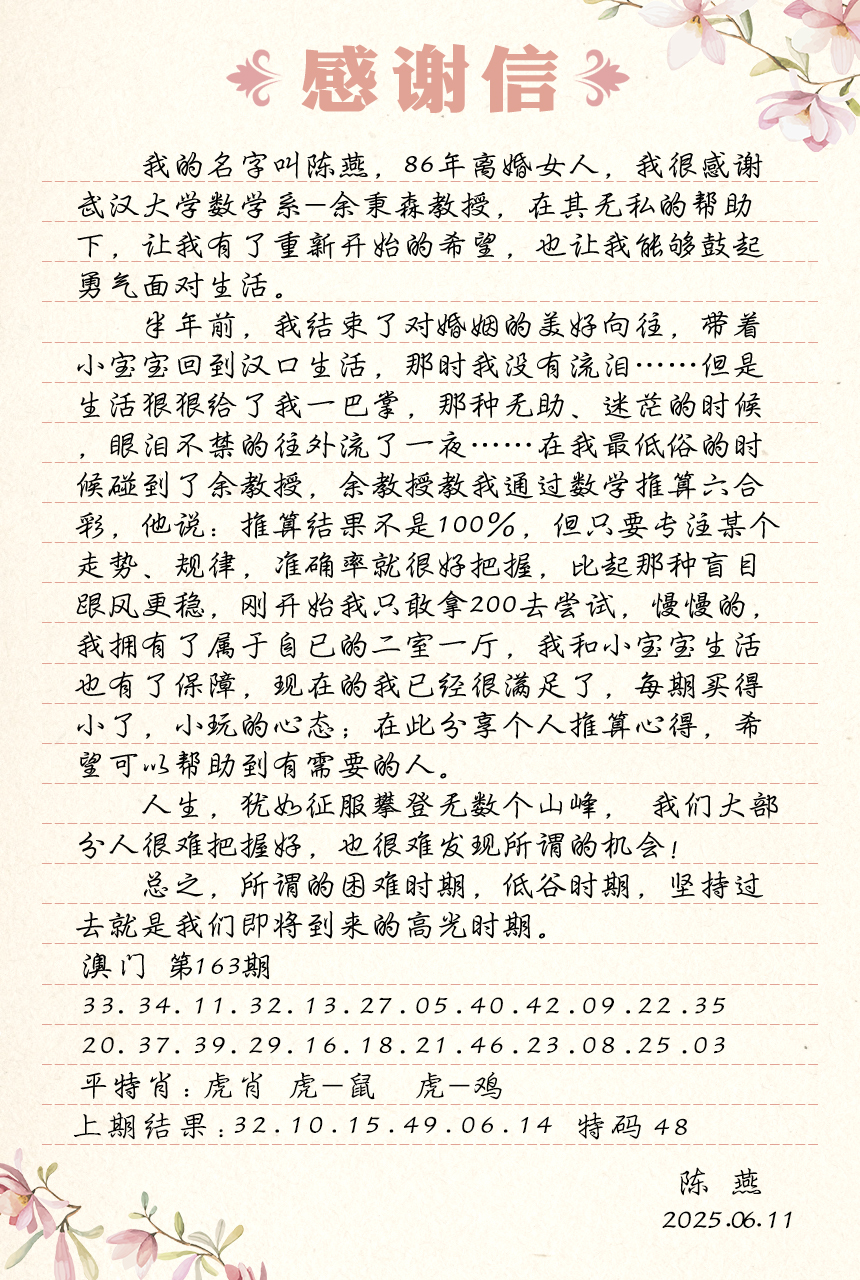 感谢信
我的名字叫陈燕，86年离婚女人，我很感谢
武汉大学数学系—余秉森教授，在其无私的帮助
下，让我有了重新开始的希望，也让我能够鼓起
勇气面对生活。
半年前，我结束了对婚姻的美好向往，带着
小宝宝回到汉口生活，那时我没有流泪……但是
生活狠狠给了我一巴掌，那种无助、迷茫的时候
，眼泪不禁的往外流了一夜……在我最低俗的时
候碰到了余教授，余教授教我通过数学推算六合
彩，他说：推算结果不是100%，但只要专注某个
走势、规律，准确率就很好把握，比起那种盲目
跟风更稳，刚开始我只敢拿200去尝试，慢慢的，
我拥有了属于自已的二室一厅，我和小宝宝生活
也有了保障，现在的我已经很满足了，每期买得
小了，小玩的心态；在此分享个人推算心得，希
望可以帮助到有需要的人。
人生，犹如征服攀登无数个山峰， 我们大部
分人很难把握好，也很难发现所谓的机会！
总之，所谓的困难时期，低谷时期，坚持过
去就是我们即将到来的高光时期。
澳门 第163期
33.34.11.32.13.27.05.40.42.09.22.35
20.37.39.29.16.18.21.46.23.08.25.03
平特肖：虎肖 虎—鼠 虎—鸡
上期结果：32.10.15.49.06.14 特码48
陈 燕
2025.06.11